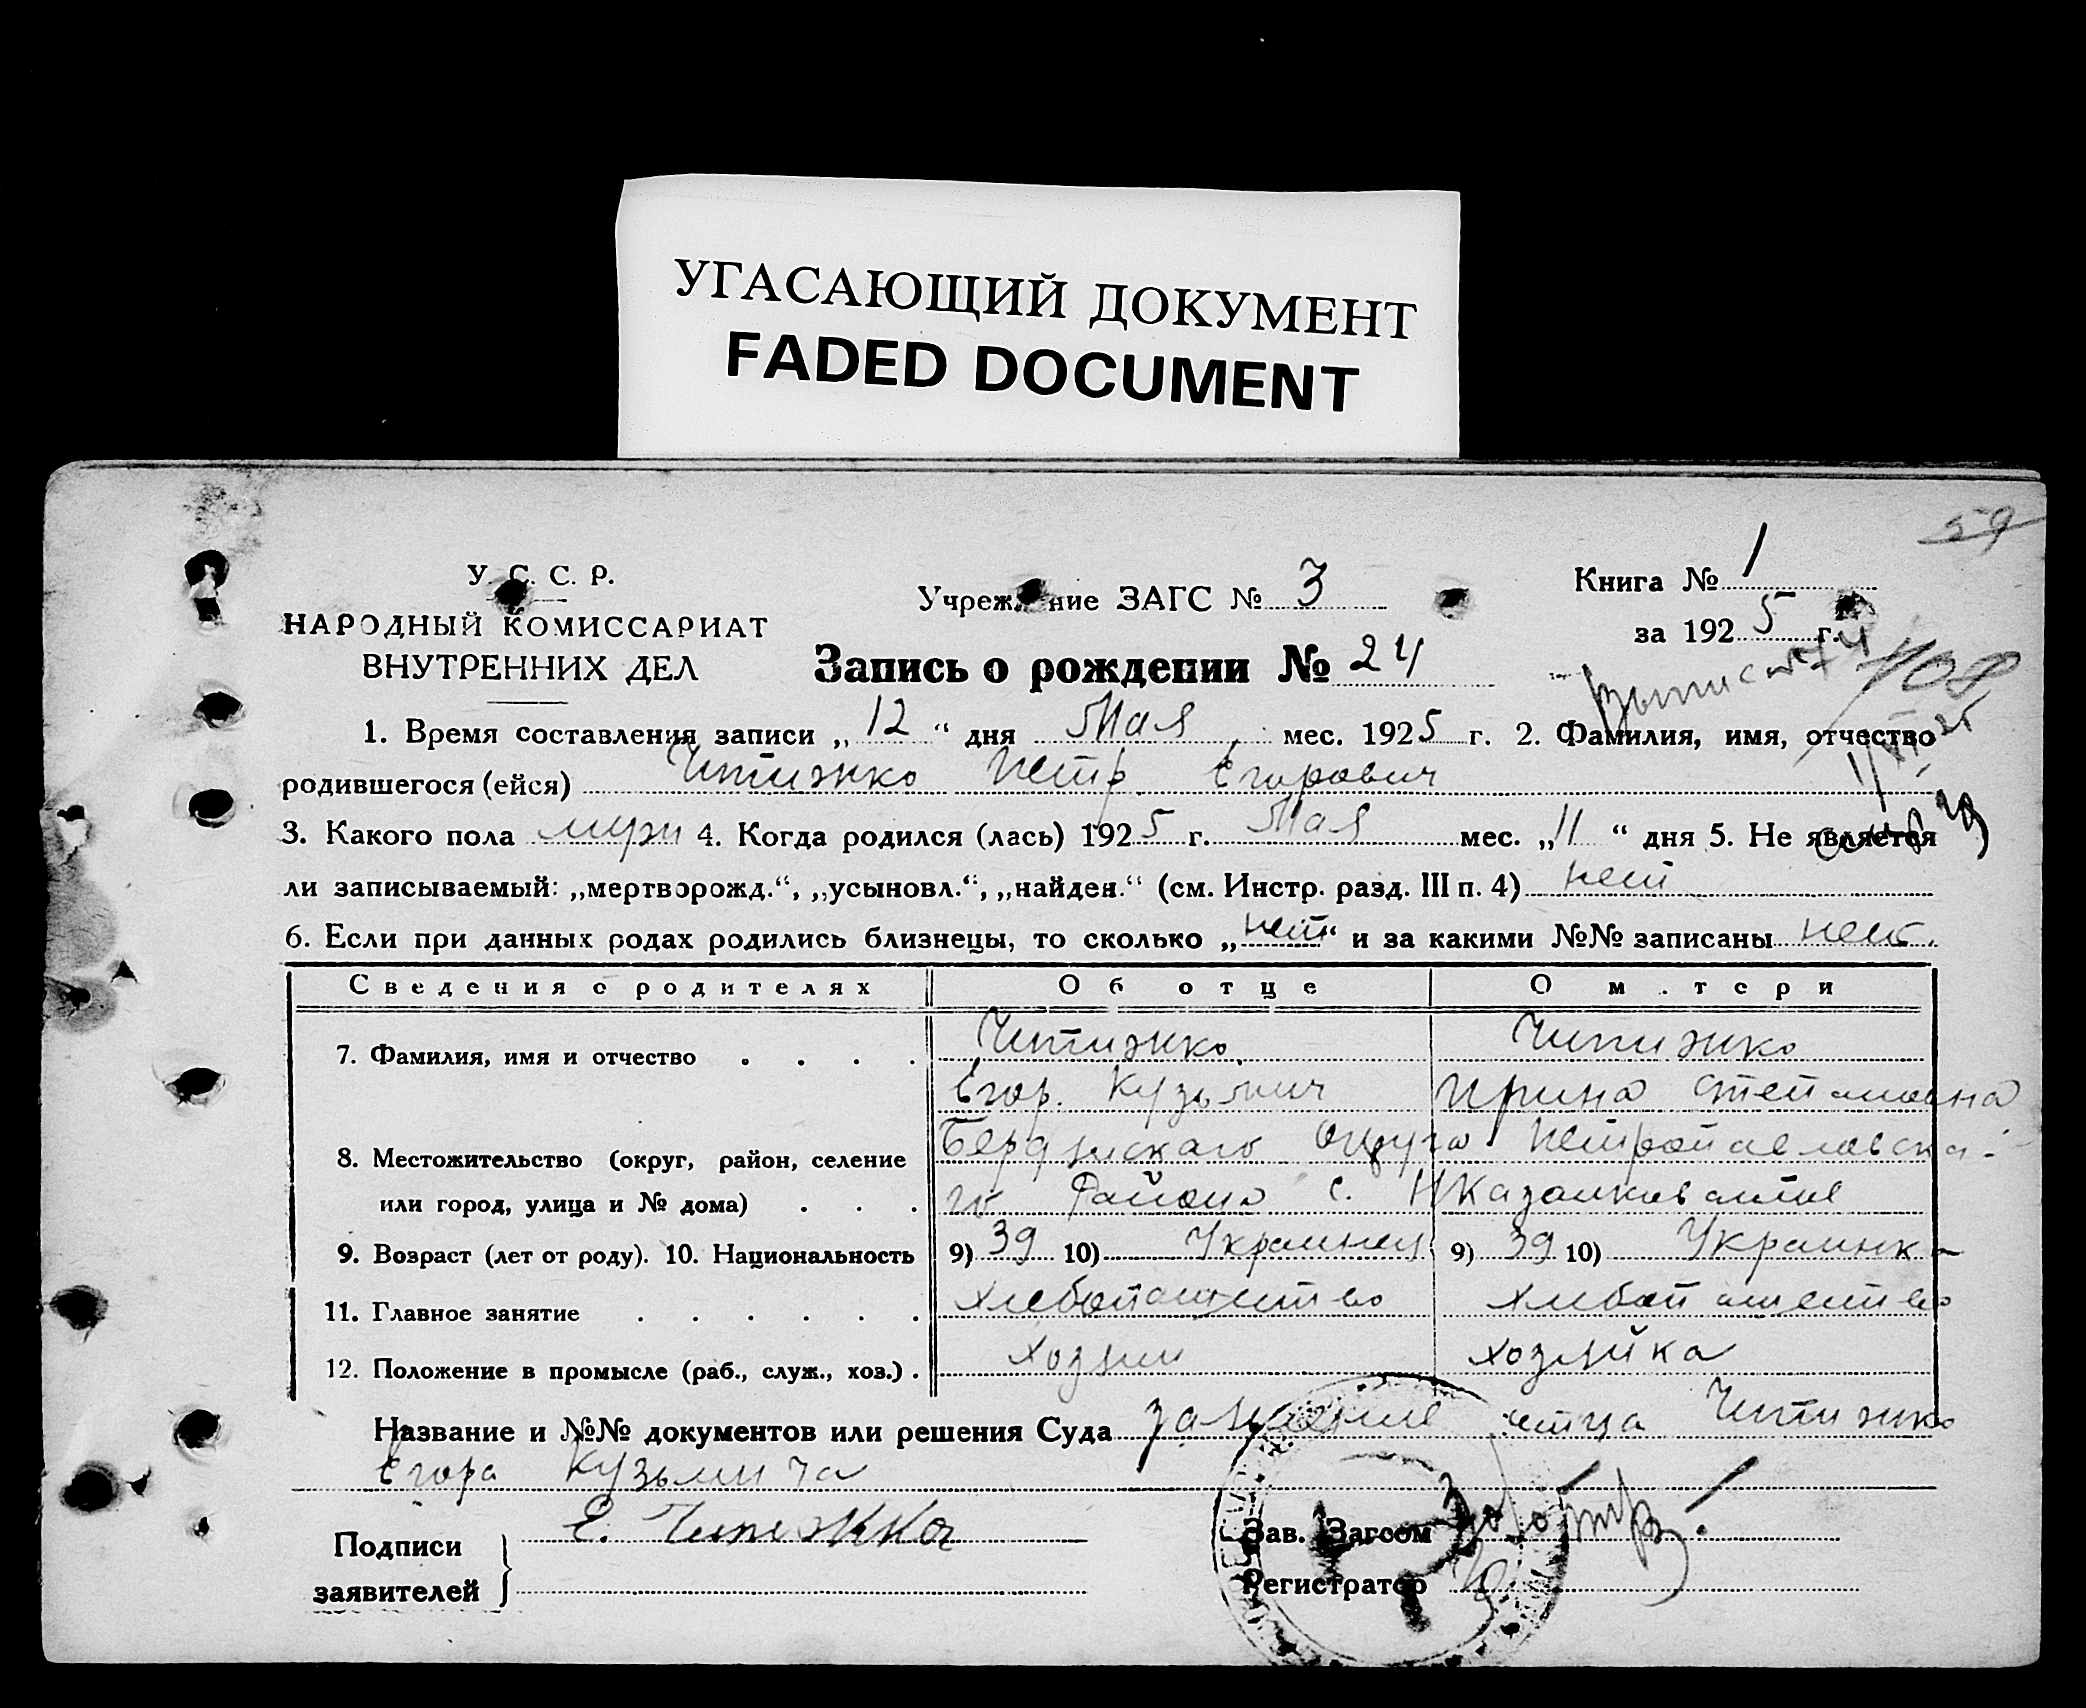 УГАСАЮЩИЙ ДОКУМЕНТ
FADED DOCUMENT
59
У. С. С. Р.
НАРОДНЫЙ КОМИССАРИАТ
ВНУТРЕННИХ ДЕЛ
Учреждение ЗАГС № 3
Книга № 1
за 1925 г.
Запись о рождении № 24
408
1. Время составления записи „12“ дня Мая мес. 1925 г. 2. Фамилия, имя, отчество
родившегося (ейся) Чипижко Петр Егорович
3. Какого пола муж 4. Когда родился (лась) 1925 г. Мая мес. „11“ дня 5. Не является
ли записываемый: „мертворожд.“, „усыновл.“, „найден.“ (см. Инстр. разд. III п. 4) нет
6. Если при данных родах родились близнецы, то сколько „нет“ и за какими №№ записаны нет.
Сведения о родителях Об отце О матери
7. Фамилия, имя и отчество Чипижко Чипижко
Егор. Кузьмич Ирина Степановна
8. Местожительство (округ, район, селение Бердянского округа Петропавловска-
или город, улица и № дома) го Района с.
9. Возраст (лет от роду). 10. Национальность 9) 39 10) Украинец 9) 39 10) Украинка
11. Главное занятие хлебопашество хлебопашество
12. Положение в промысле (раб., служ., хоз.) хозяин хозяйка
Название и №№ документов или решения Суда отца Чипижко
Егора Кузьмича
Подписи
заявителей
Е. Чипижко
Зав. Загсом
Регистратор